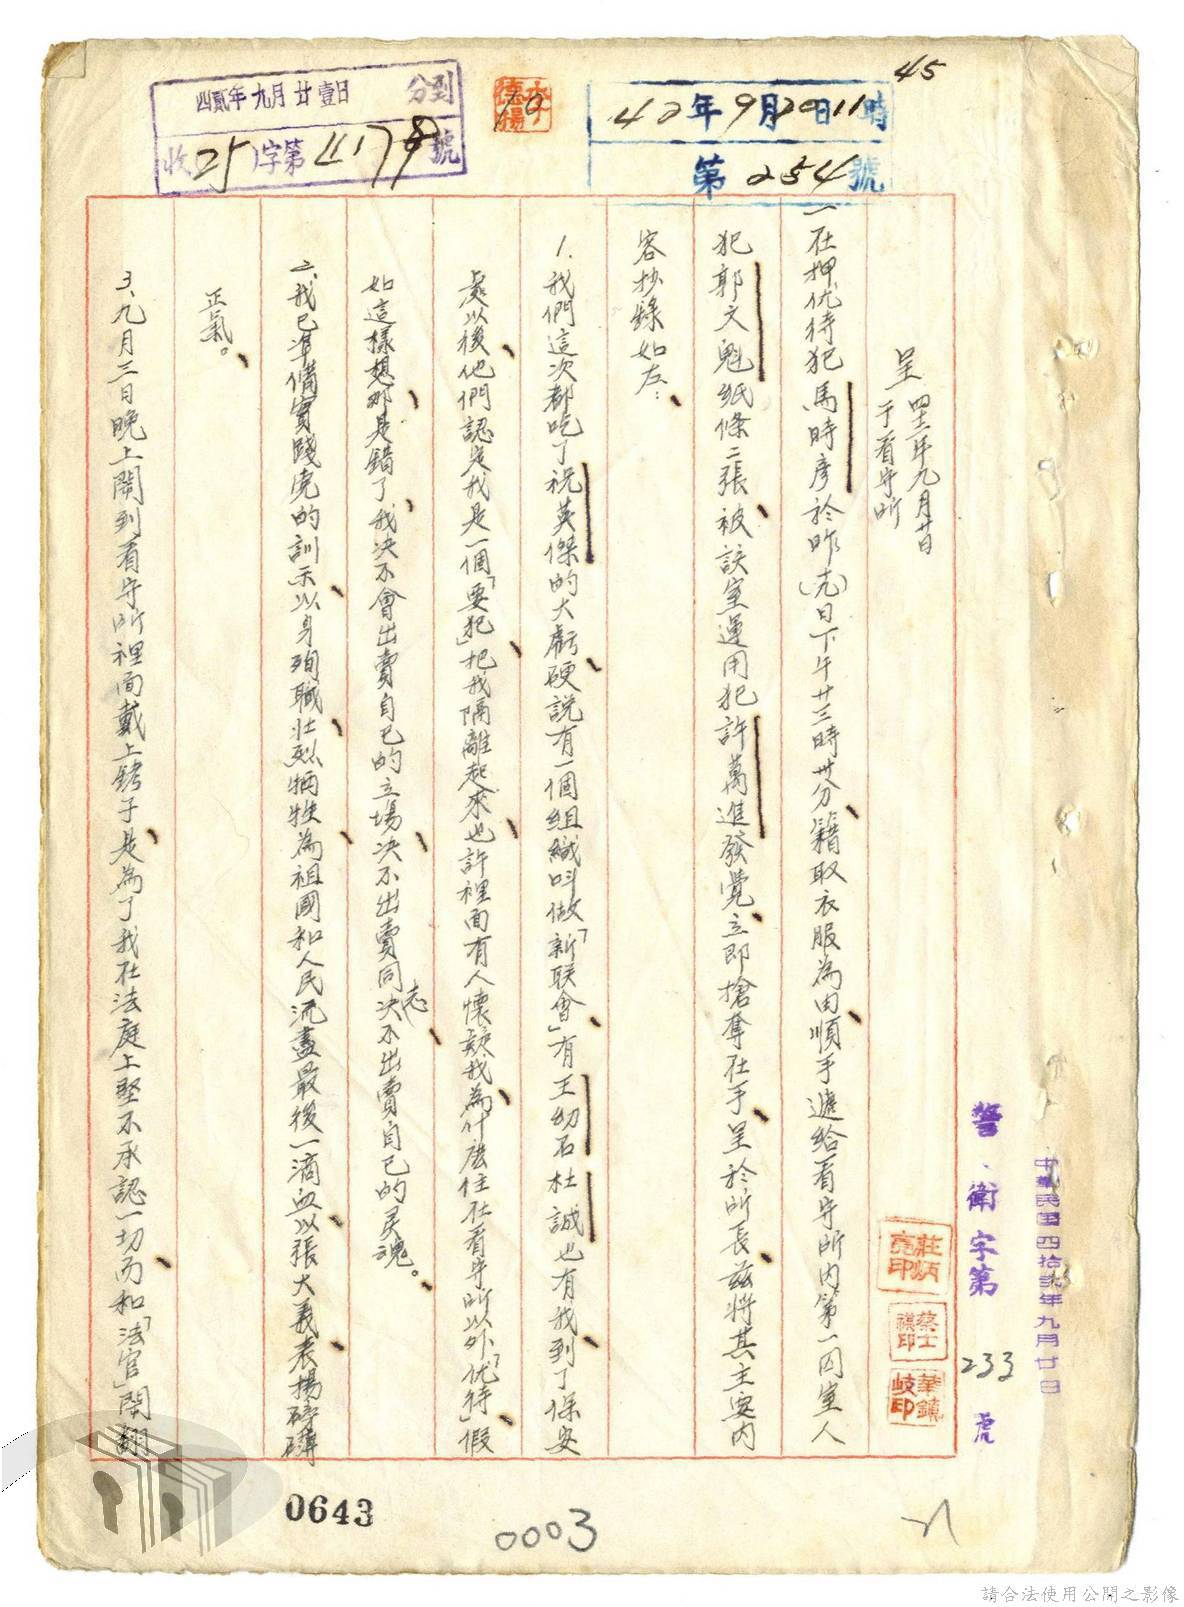 45
四貳年九月廿壹日
到分
收25字第4178號
李德揚
10
42年9月20日11時
第254號
中華民國四拾弍年九月廿日
警衛字第233號
呈 四十二年九月廿日
于看守所
一在押优待犯馬時彦於昨(九)日下午廿三時卅分、籍取衣服為由、順手遞給看守所内第一囚室人
犯郭文魁纸條二張、被該室運用犯許萬進發覺、立即搶奪在手、呈於所長、茲將其主要内
容抄錄如左:
1.我們這次都吃了祝英傑的大虧、硬説有一個組織叫做「新联會」、有王幼石杜誠也有我、到了保安
處以後、他們認定我是一個「要犯」、把我隔離起來、也許裡面有人懷疑我、為什麼住在看守所以外「优待」、假
如這樣想、那是錯了、我决不會出賣自己的立場、决不出賣同志、决不出賣自己的灵魂。
二、我已準備實踐党的訓示、以身殉職、壯烈牺牲、為祖國和人民流盡最後一滴血、以張大義、表揚磅礴
正氣。
3、九月三日晚上関到看守所裡面戴上銬子、是為了我在法庭上堅不承認一切、而和「法官」閙翻
莊炳亮印
蔡士祺印
華鎮岐印
0643
0003
請合法使用公開之影像